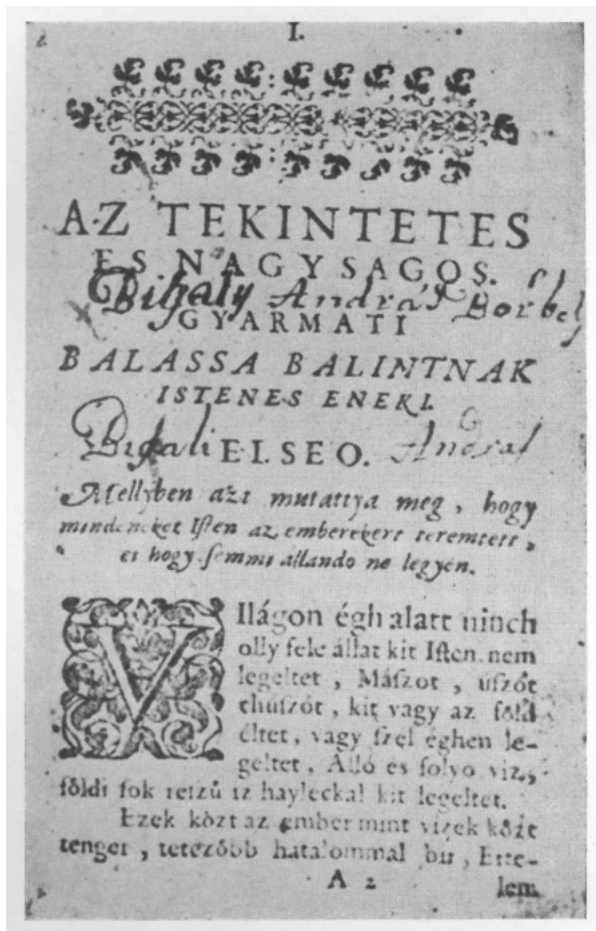 I.
AZ TEKINTETES
ES NAGYSAGOS.
Bihaly András Borbely
GYARMATI
BALASSA BALINTNAK
ISTENES ENEKI.
Bihali ELSEO. András
Mellyben azt mutattya meg, hogy
mindeneket Isten az emberekert teremtett,
es hogy semmi allando ne legyen.
VIlágon égh alatt ninch
olly fele állat kit Isten nem
legeltet, Mászot, úszót
chúszót, kit vagy az föld
éltet, vagy szel éghen le-
geltet, Álló es folyo viz,
földi sok
kit legeltet.
Ezek közt az ember mint vizek közt
tenger, tetezőbb hatalommal bir, Erte-
A 2
lem